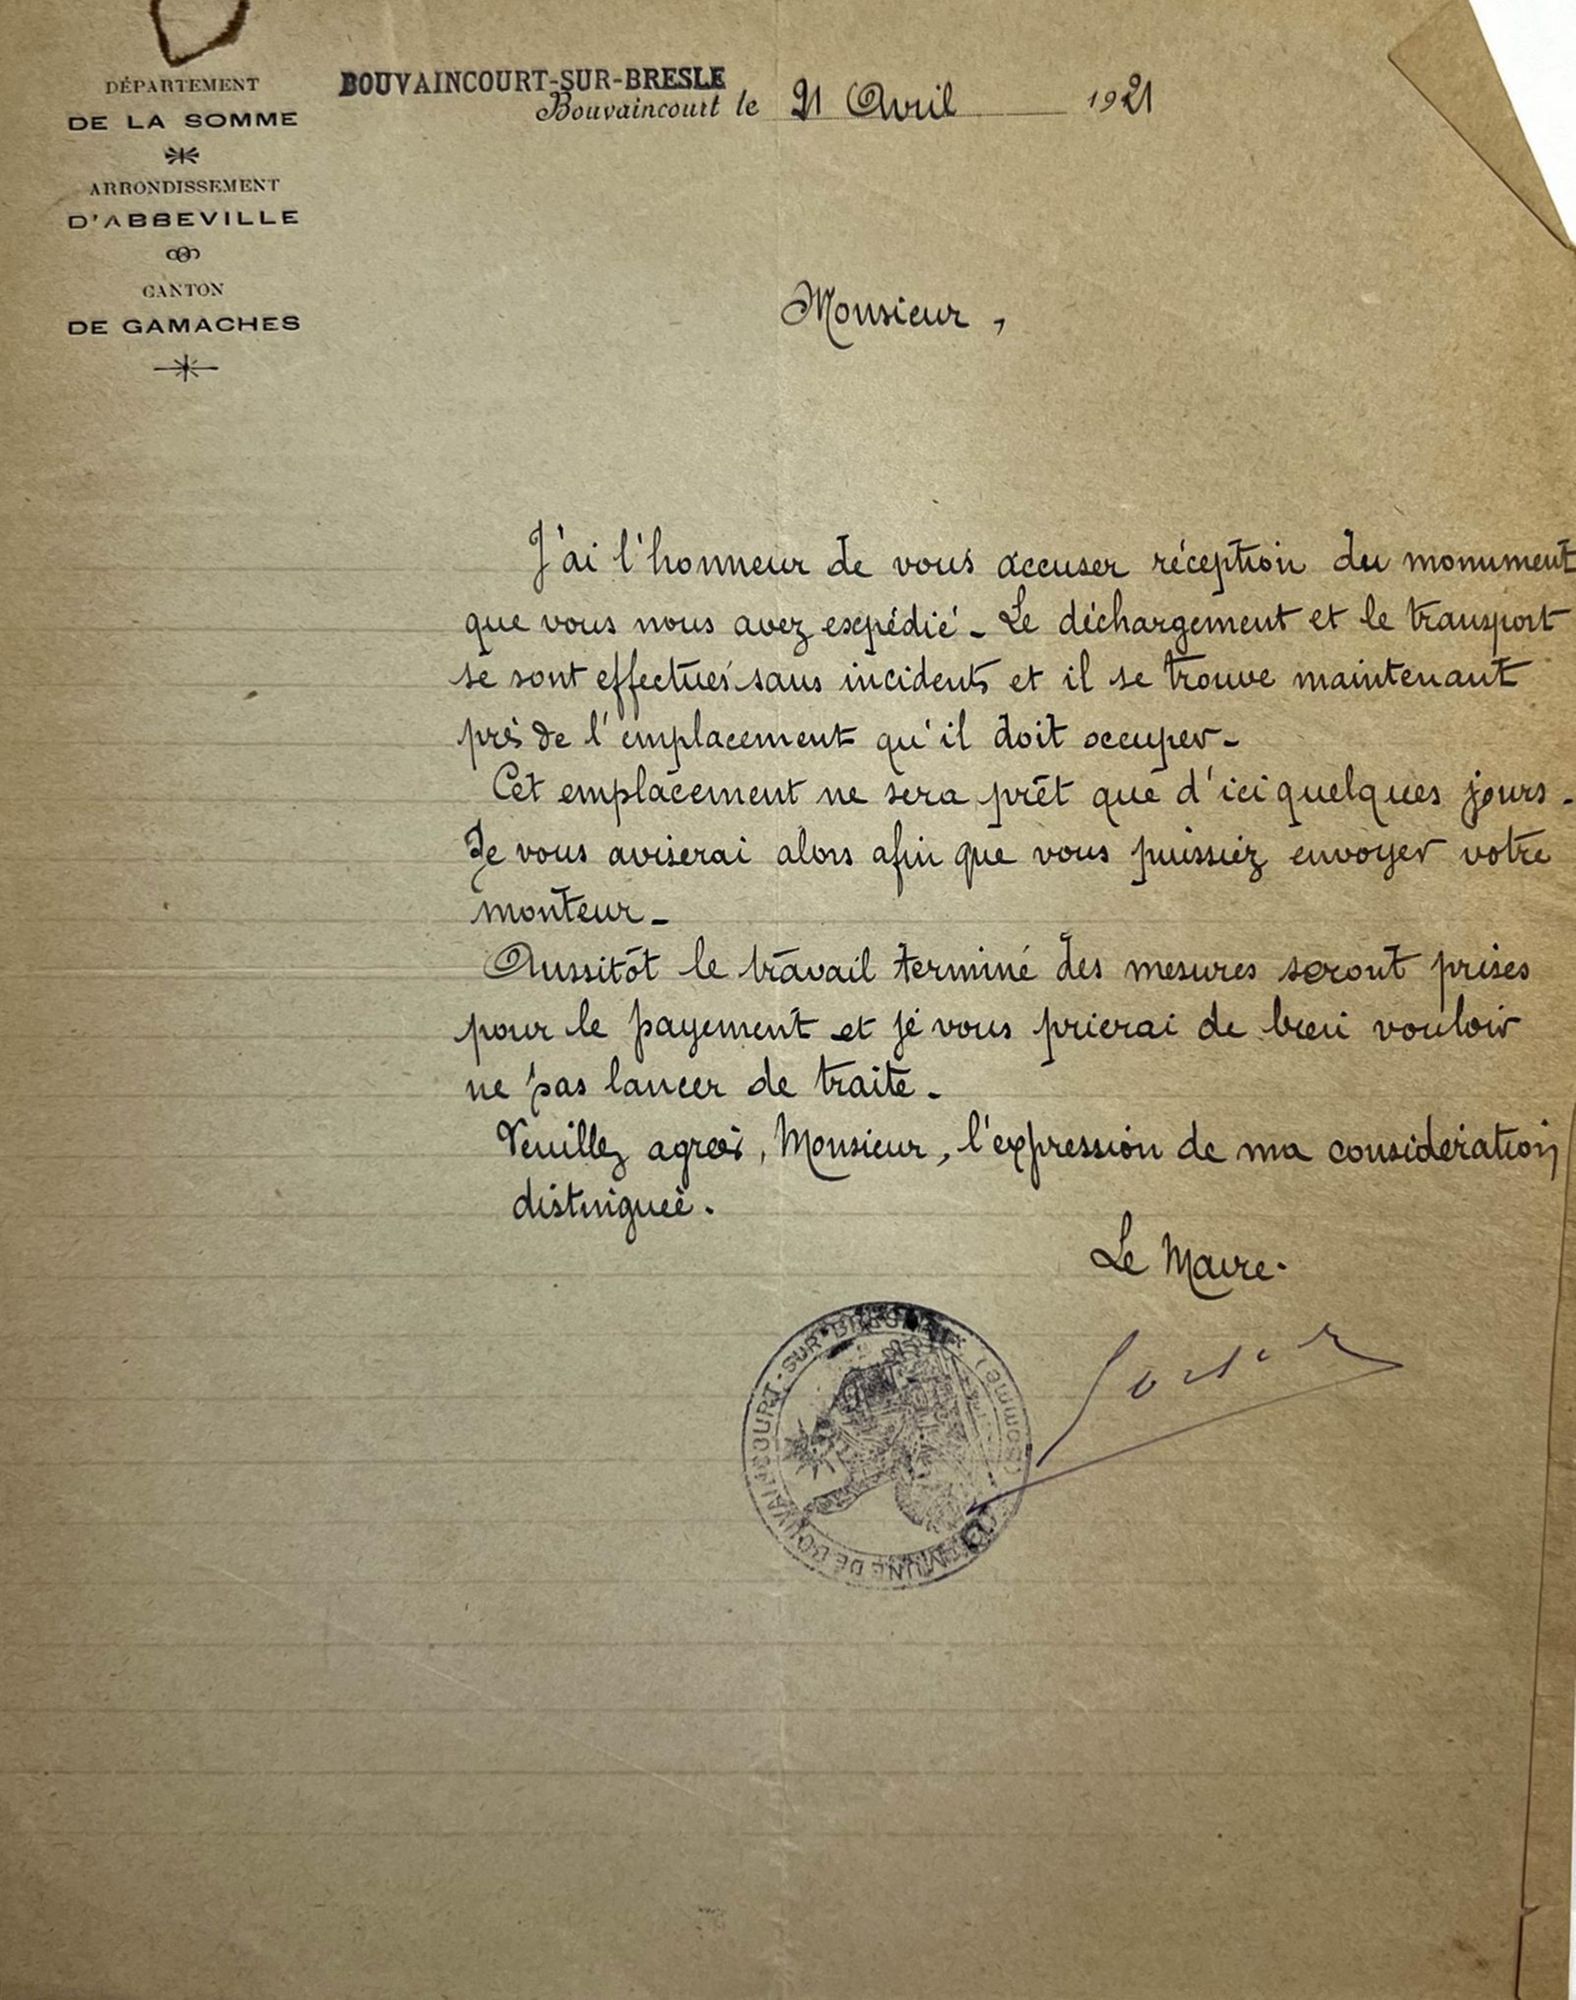 DÉPARTEMENT
DE LA SOMME
ARRONDISSEMENT
D'ABBEVILLE
CANTON
DE GAMACHES
BOUVAINCOURT-SUR-BRESLE
Bouvaincourt le 21 Avril 1921
Monsieur,
J'ai l'honneur de vous accuser réception du monument
que vous nous avez expédié - Le déchargement et le transport
se sont effectués sans incidents et il se trouve maintenant
près de l'emplacement qu'il doit occuper -
Cet emplacement ne sera prêt que d'ici quelques jours -
Je vous aviserai alors afin que vous puissiez envoyer votre
monteur -
Aussitôt le travail terminé des mesures seront prises
pour le payement et je vous prierai de bien vouloir
ne pas lancer de traite -
Veuillez agréer, Monsieur, l'expression de ma considération
distinguée.
Le Maire.
COMMUNE DE BOUVAINCOURT-SUR-BRESLE (SOMME)